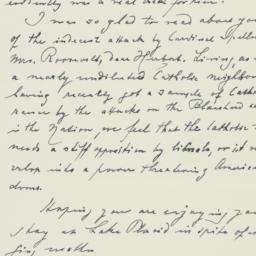 evidently was a real
I was so glad to read about your
of the indecent attack by Cardinal Spellman
Mrs. Roosevelt, dear Herbert. Living, as
a nearly undiluted Catholic neighbor
having recently got a sample of Catho
rance by the attacks on the Blanshard
in the Nation, we feel that the Catholic
needs a stiff opposition by liberals, or it
velop into a power threatening America
doms.
Hoping you are enjoying your
stay at Lake Placid in spite of